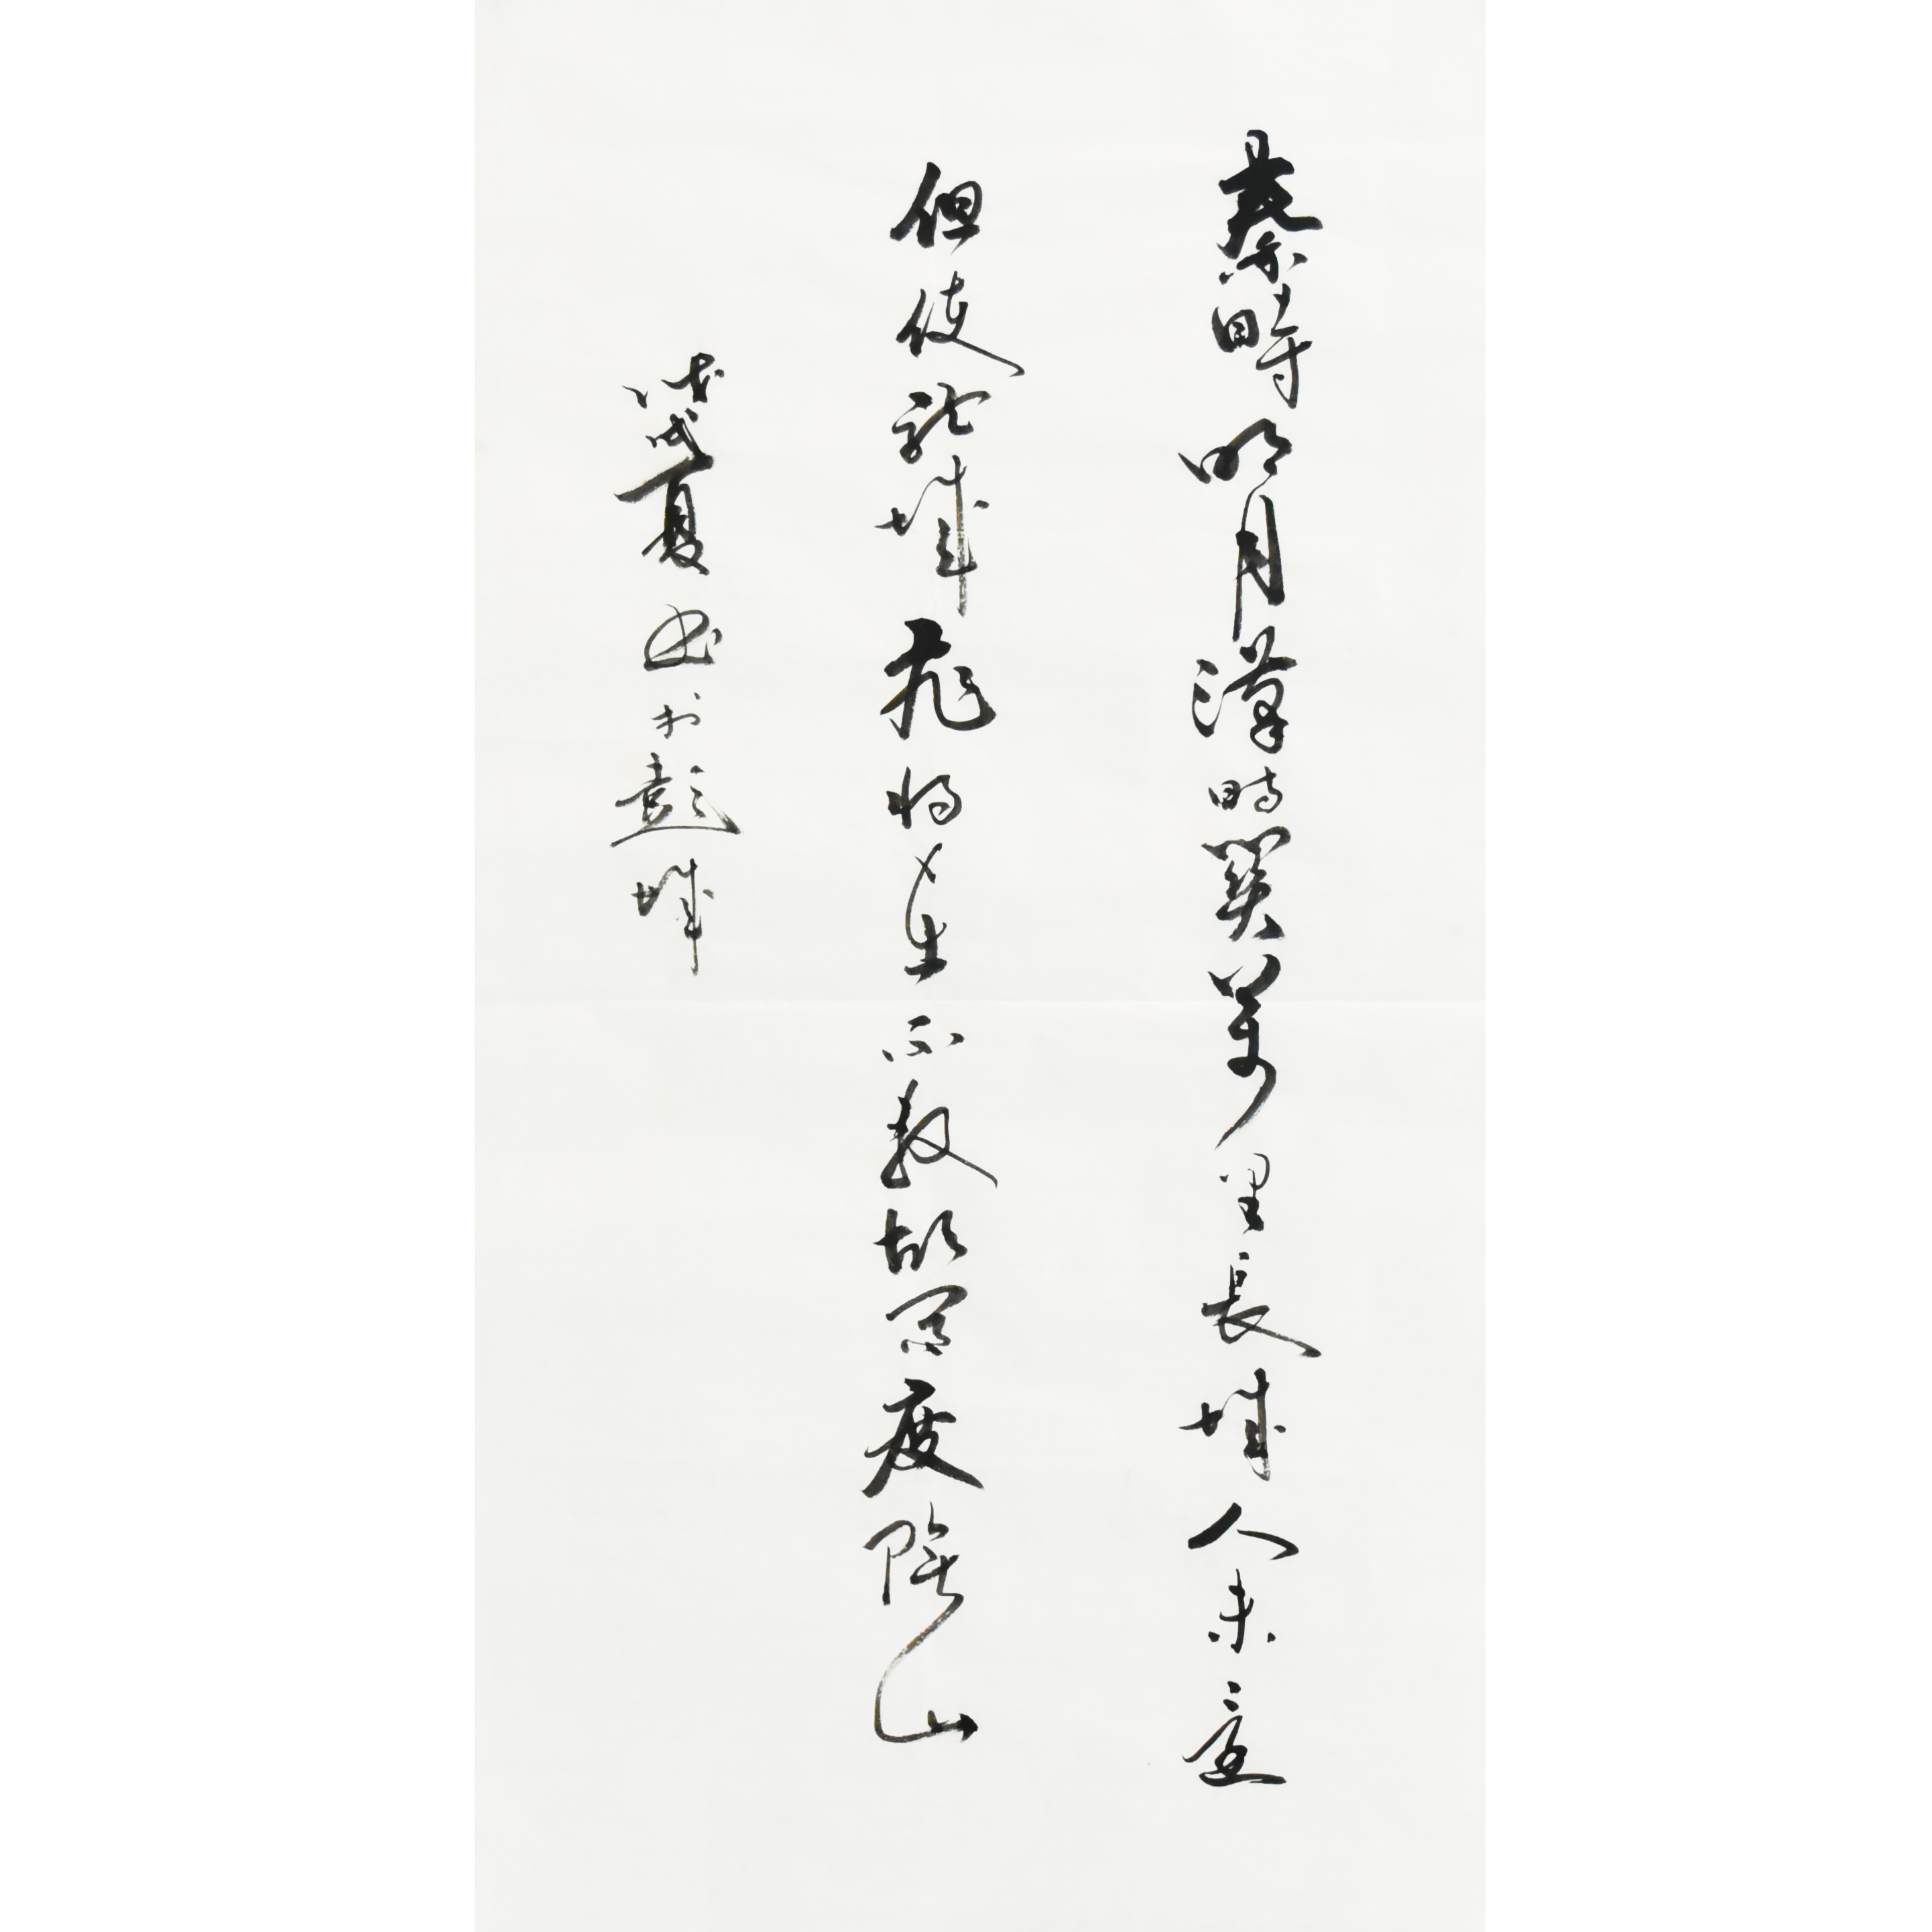 秦時明月漢時關萬里長城人未還
但使龍城飛將在不教胡馬度陰山
戊戌夏書於彭城